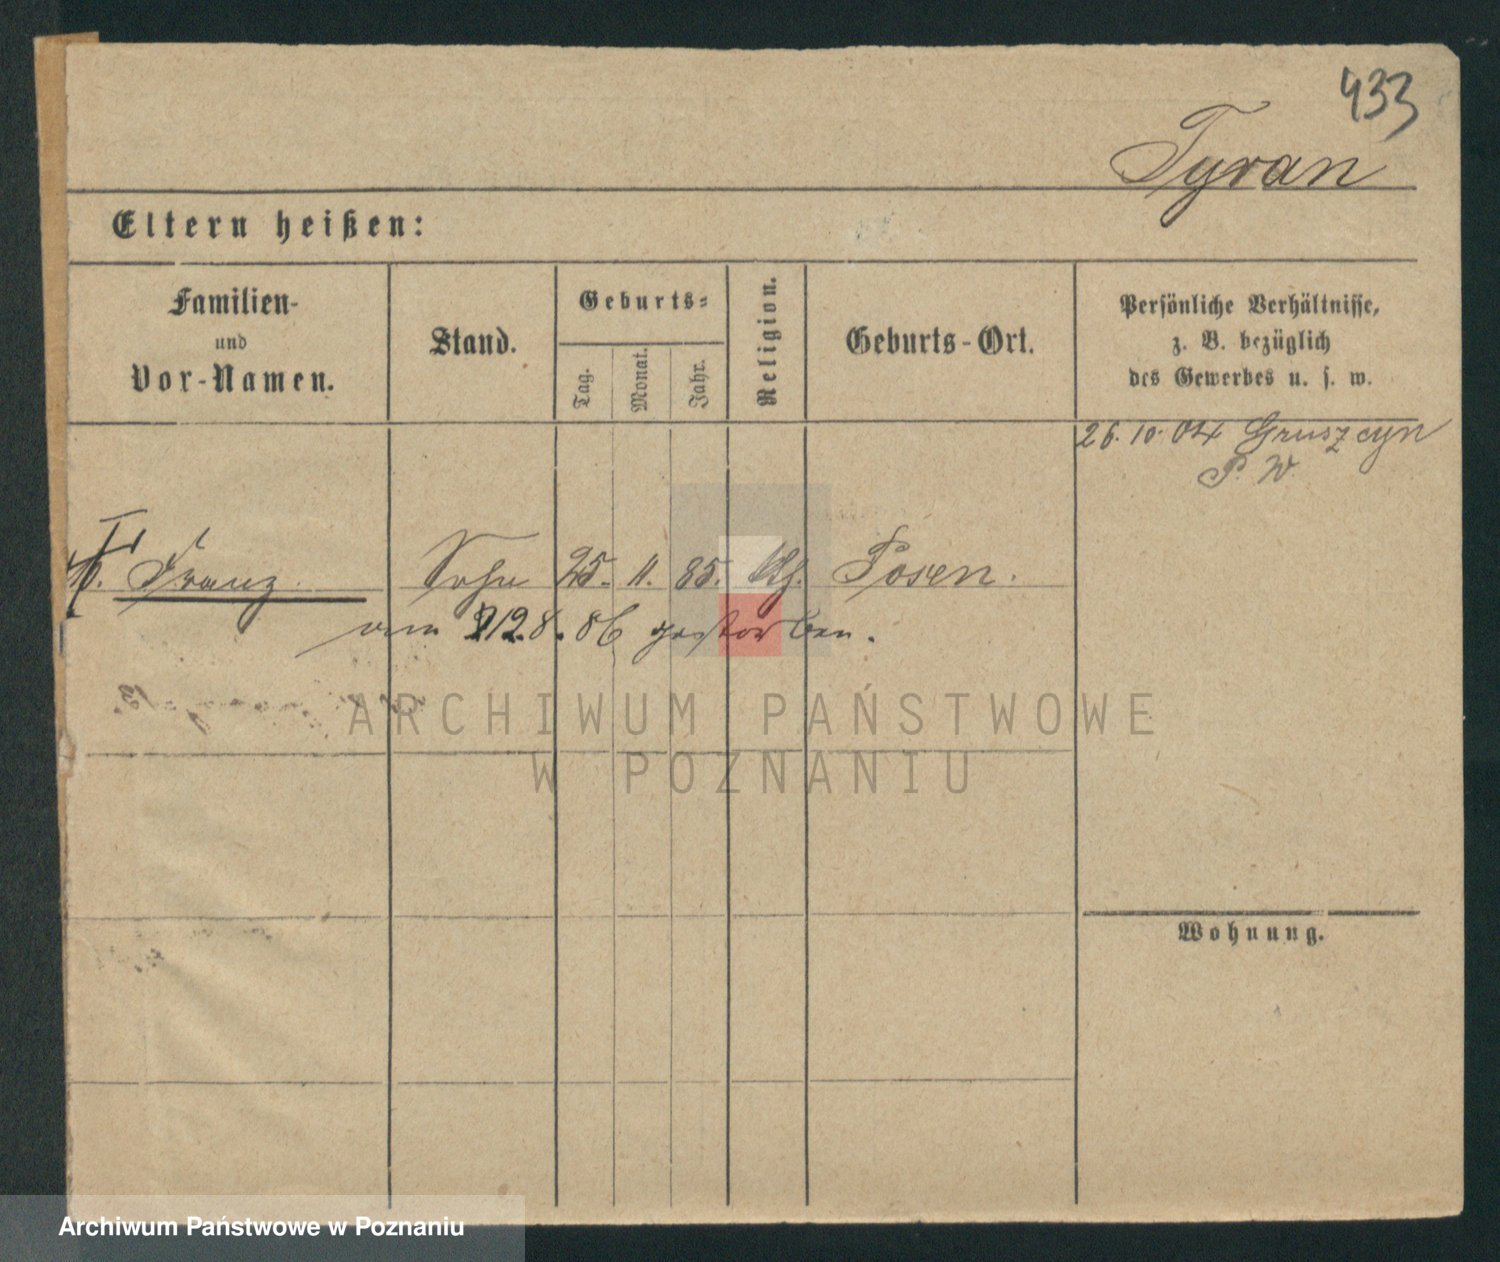 433
Tyran
Eltern heißen:
Familien-
und
Vor-Namen.
Stand.
Geburts-
Tag.
Monat.
Jahr.
Religion.
Geburts-Ort.
Persönliche Verhältnisse,
z. B. bezüglich
des Gewerbes u. s. w.
26. 10. 04 Gruszcyn
P. W.
Franz Sohn 25. 11. 85. kth. Posen.
am 212.8.86 gestorben.
Wohnung.
ARCHIWUM PAŃSTWOWE
W POZNANIU
Archiwum Państwowe w Poznaniu